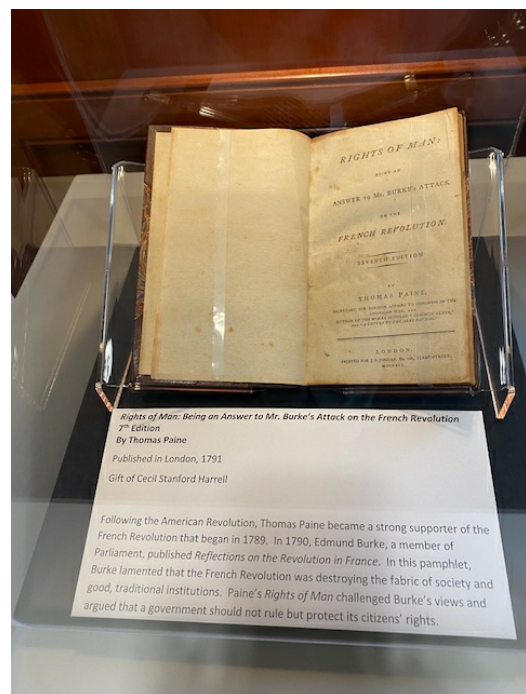 RIGHTS OF MAN:
BEING AN
ANSWER TO MR. BURKE'S ATTACK
ON THE
FRENCH REVOLUTION.
SEVENTH EDITION
BY
THOMAS PAINE,
SECRETARY FOR FOREIGN AFFAIRS TO CONGRESS IN THE
AMERICAN WAR, AND
AUTHOR OF THE WORKS INTITLED "COMMON SENSE,"
LONDON:
PRINTED FOR J. S. JORDAN, No. 166, FLEET-STREET.
Rights of Man: Being an Answer to Mr. Burke's Attack on the French Revolution
7th Edition
By Thomas Paine
Published in London, 1791
Gift of Cecil Stanford Harrell
Following the American Revolution, Thomas Paine became a strong supporter of the
French Revolution that began in 1789. In 1790, Edmund Burke, a member of
Parliament, published Reflections on the Revolution in France. In this pamphlet,
Burke lamented that the French Revolution was destroying the fabric of society and
good, traditional institutions. Paine's Rights of Man challenged Burke's views and
argued that a government should not rule but protect its citizens' rights.